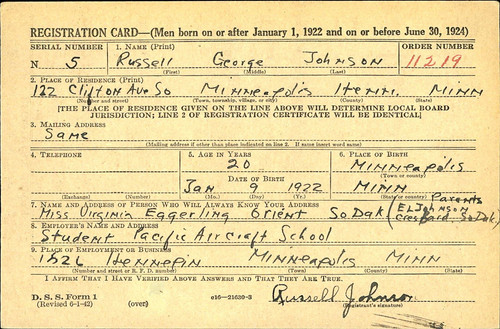 REGISTRATION CARD—(Men born on or after January 1, 1922 and on or before June 30, 1924)
SERIAL NUMBER 1. NAME (Print) ORDER NUMBER
N 5 Russell George Johnson 11219
(First) (Middle) (Last)
2. PLACE OF RESIDENCE (Print)
122 Clifton Ave So Minneapolis Henn. Minn
(Number and street) (Town, township, village, or city) (County) (State)
[THE PLACE OF RESIDENCE GIVEN ON THE LINE ABOVE WILL DETERMINE LOCAL BOARD
JURISDICTION; LINE 2 OF REGISTRATION CERTIFICATE WILL BE IDENTICAL]
3. MAILING ADDRESS
Same
(Mailing address if other than place indicated on line 2. If same insert word same)
4. TELEPHONE 5. AGE IN YEARS 6. PLACE OF BIRTH
20 Minneapolis
DATE OF BIRTH (Town or county)
Jan 9 1922 Minn
(Exchange) (Number) (Mo.) (Day) (Yr.) (State or country)
Parents
7. NAME AND ADDRESS OF PERSON WHO WILL ALWAYS KNOW YOUR ADDRESS
Miss Virginia Eggerling Orient So Dak (El Johnson
Cresbard So Dak)
8. EMPLOYER'S NAME AND ADDRESS
Student Pacific Aircraft School
9. PLACE OF EMPLOYMENT OR BUSINESS
1826 Hennepin Minneapolis Minn
(Number and street or R. F. D. number) (Town) (County) (State)
I AFFIRM THAT I HAVE VERIFIED ABOVE ANSWERS AND THAT THEY ARE TRUE.
D. S. S. Form 1
(Revised 6-1-42) (over) Russell Johnson
(Registrant's signature)